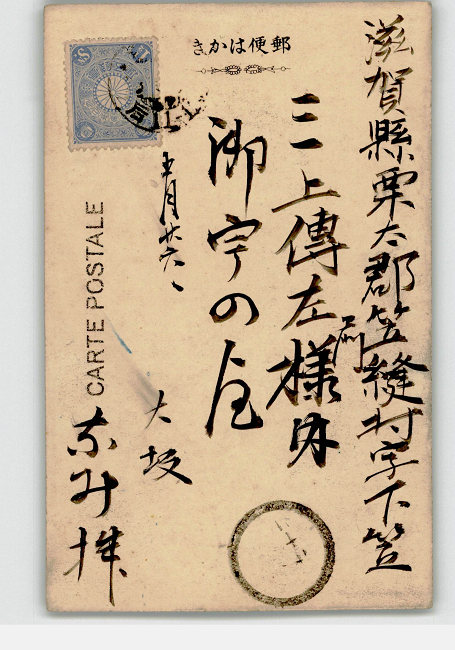 郵便はかき
滋賀縣栗太郡笠縫村字下笠
三上傳左
様内
御宇の
十月廿六、
大坂
なみ拝
CARTE POSTALE